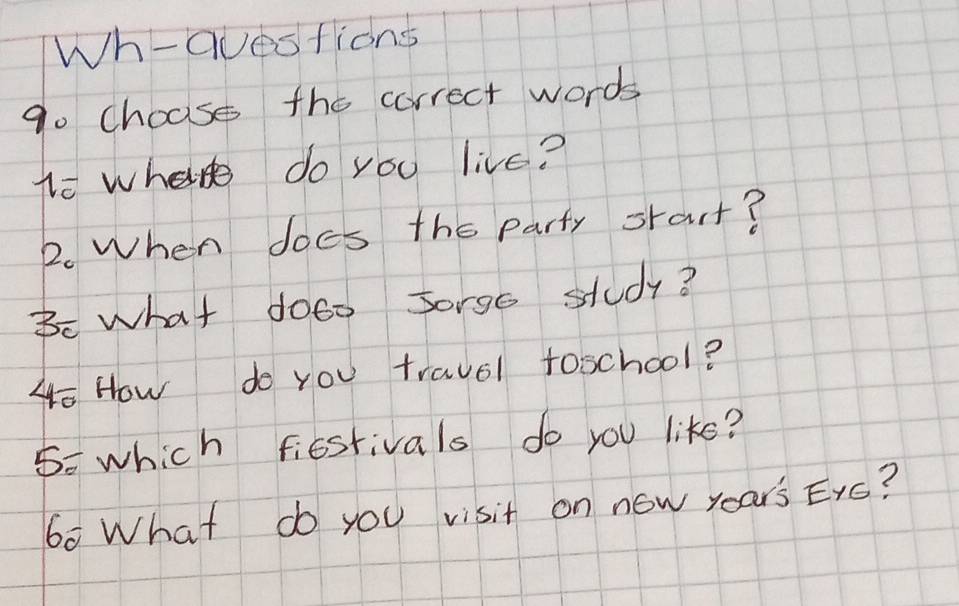 Wh-Questions
9. Choose the correct words
1. Where do you live?
2. When does the party start?
3. What does Jorge study?
4. How do you travel toschool?
5. Which fiestivals do you like?
6. What do you visit on new year's Eve?